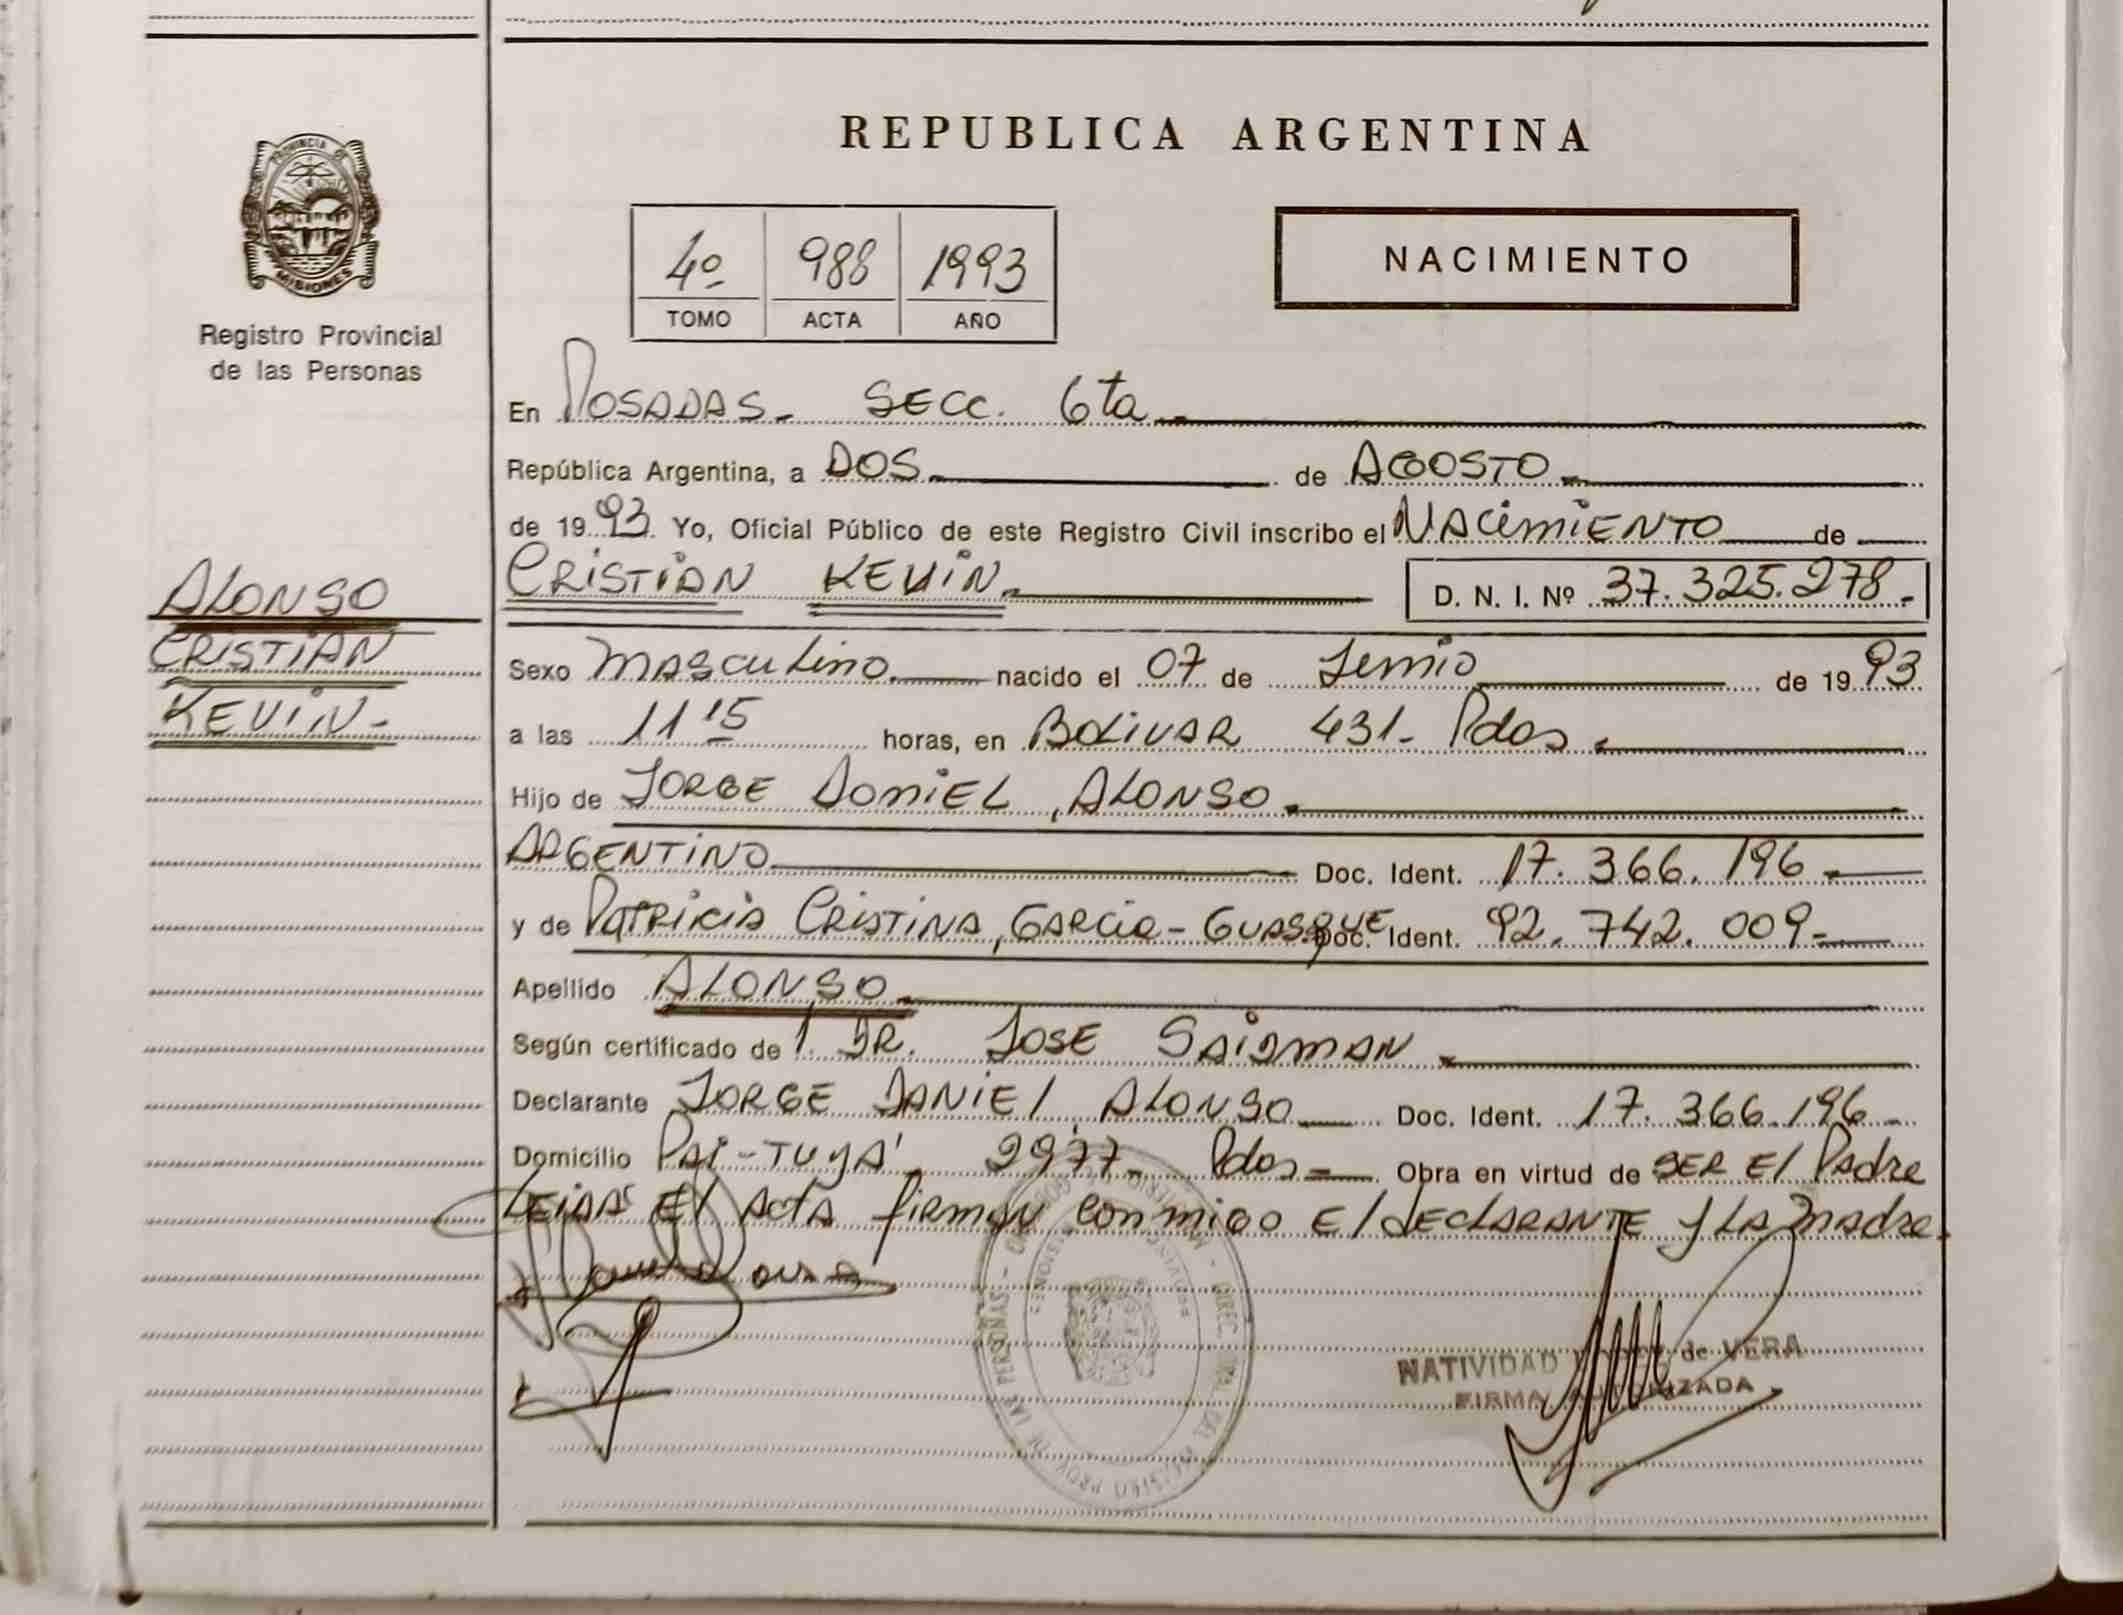 PROVINCIA DE
MISIONES
Registro Provincial
de las Personas
ALONSO
CRISTIAN
KEVIN.-
REPUBLICA ARGENTINA
4º 988 1993
TOMO ACTA AÑO
NACIMIENTO
En POSADAS.- SECC. 6ta.-
República Argentina, a DOS.- de AGOSTO.-
de 1993. Yo, Oficial Público de este Registro Civil inscribo el NACIMIENTO de
CRISTIAN KEVIN.- D. N. I. Nº 37.325.278.-
Sexo MASCULINO.- nacido el 07 de Junio de 1993
a las 11 15 horas, en BOLIVAR 431- Pdas.-
Hijo de JORGE DANIEL, ALONSO.-
ARGENTINO Doc. Ident. 17.366.196.-
y de PATRICIA CRISTINA, GARCIA-GUASQUE Doc. Ident. 92.742.009.-
Apellido ALONSO.-
Según certificado de DR. JOSE
Declarante JORGE DANIEL, ALONSO Doc. Ident. 17.366.196-
Domicilio PAI-TUYA' 2977- Pdas.- Obra en virtud de SER El Padre
LEIDA El ActA firman conmigo El dEclARANTE y LA madre.
NATIVIDAD de VERA
FIRMA AUTORIZADA